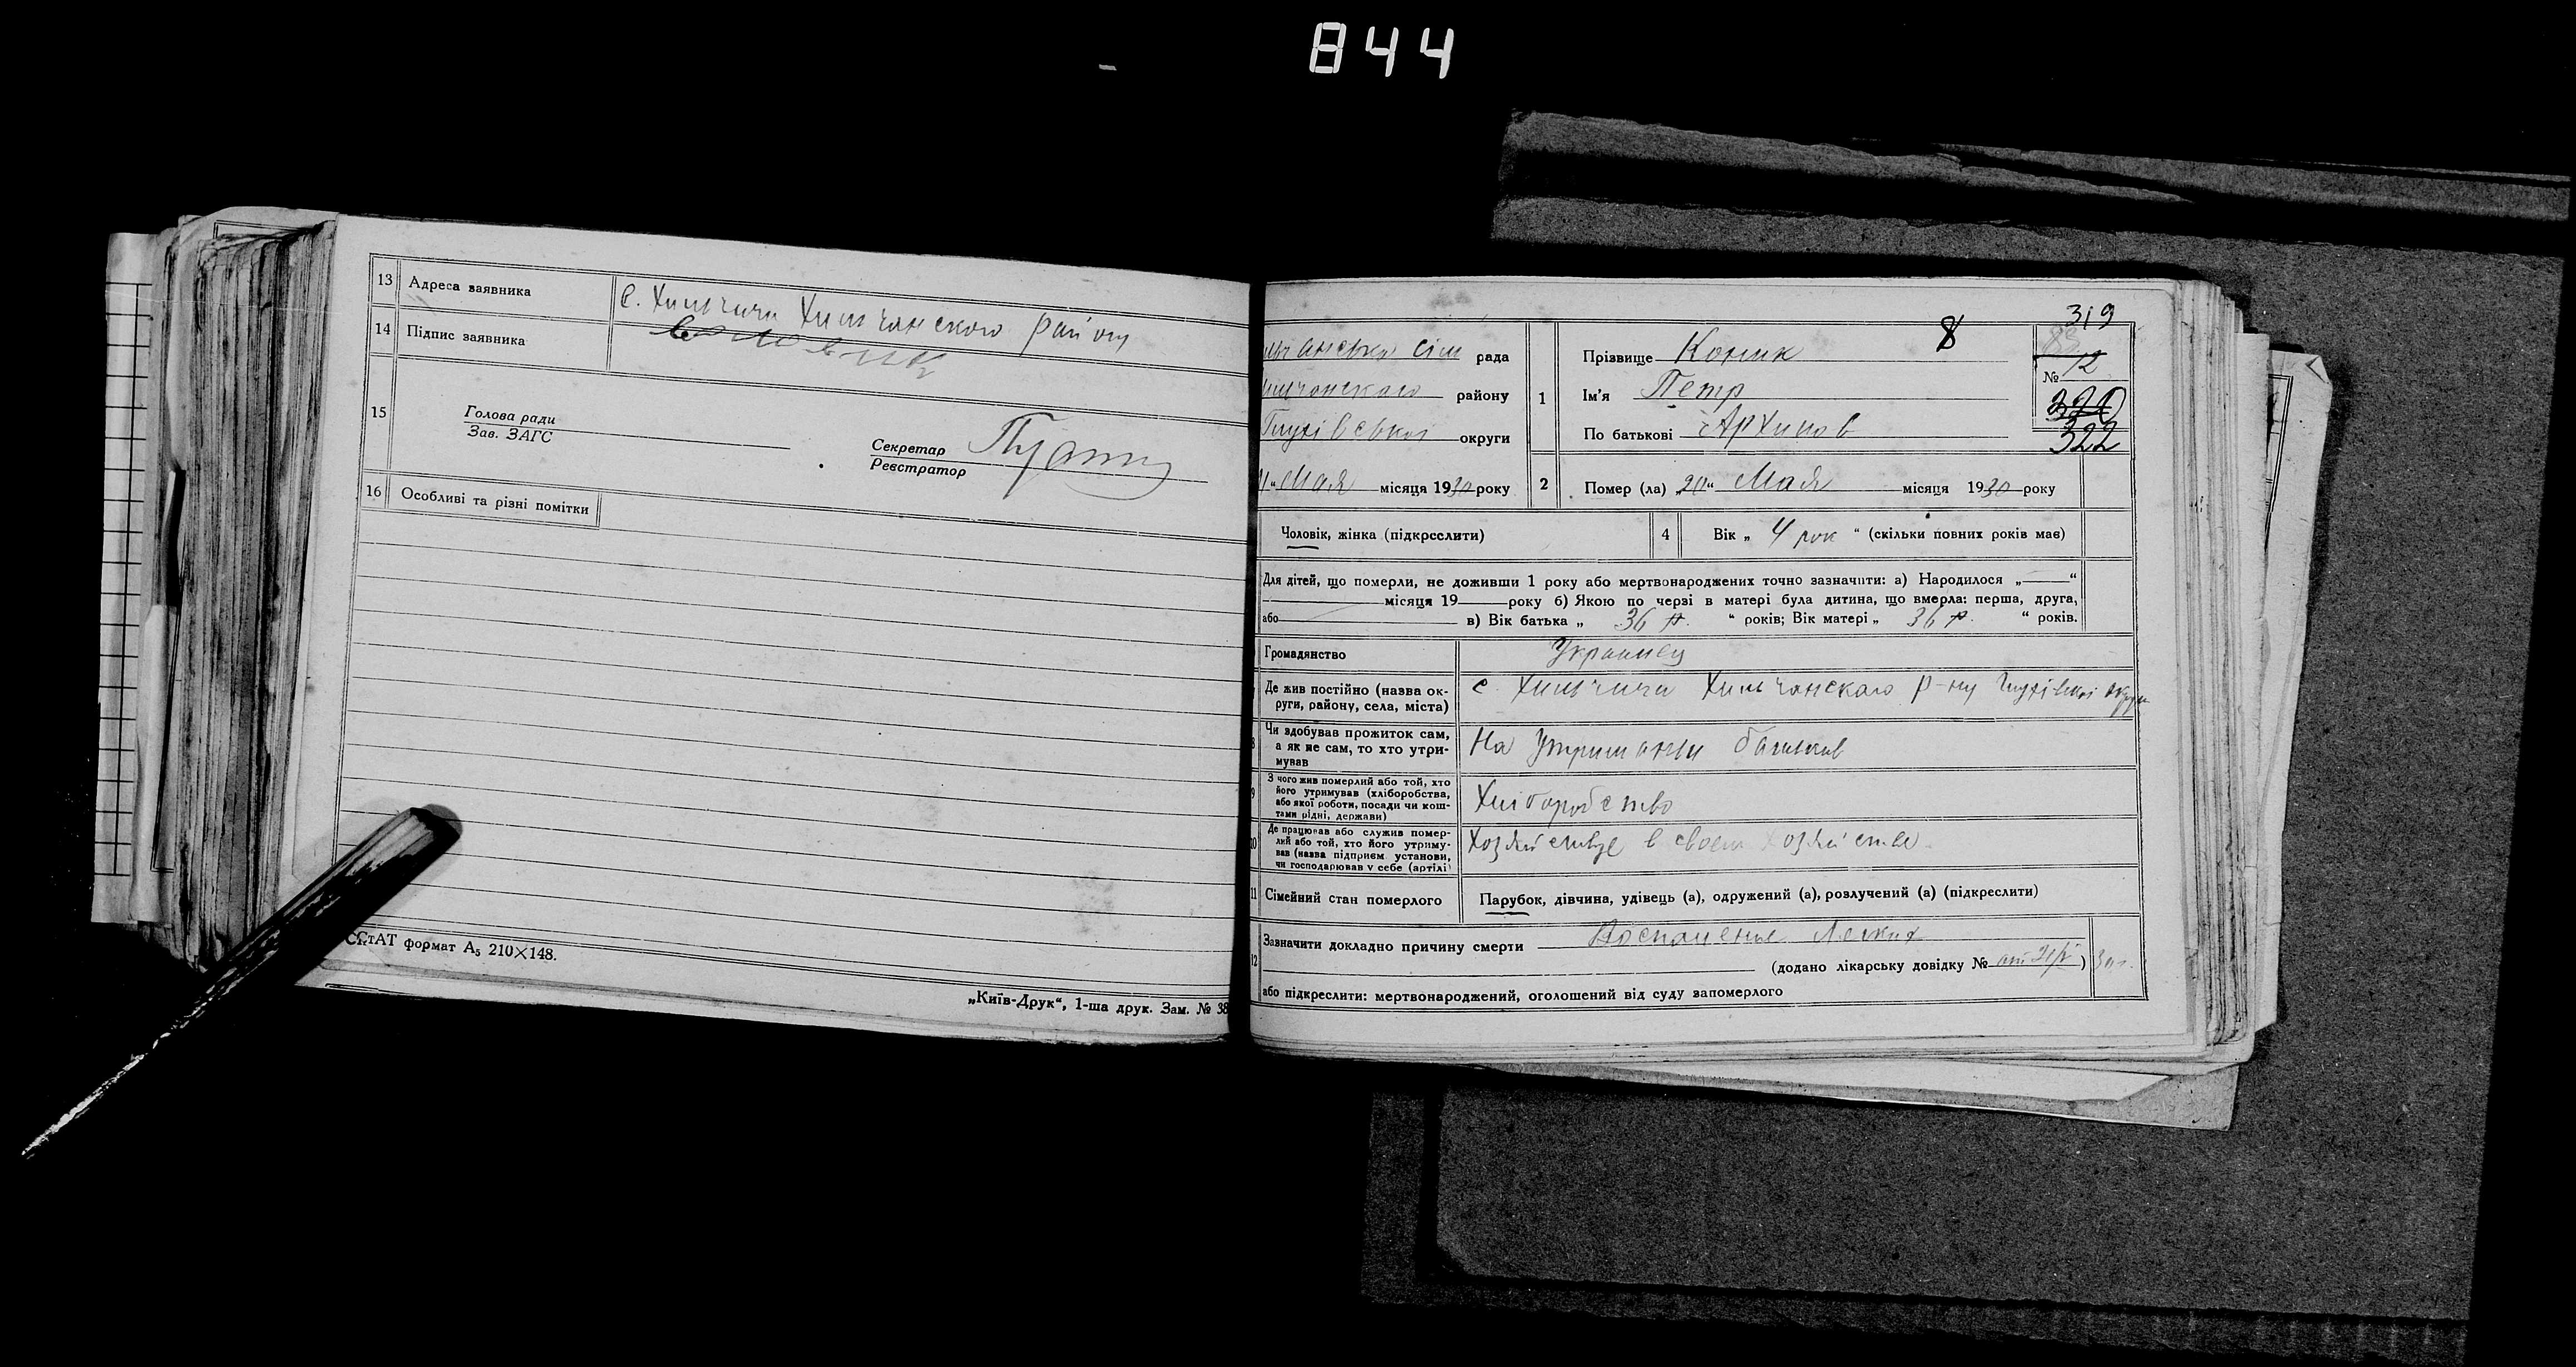 844
13 Адреса заявника с. Хильчичи Хильчанского району
14 Підпис заявника
15
Голова ради
Зав. ЗАГС
Секретар
Реєстратор
16 Особливі та різні помітки
СтАТ формат А5 210×148.
„Київ-Друк“, 1-ша друк. Зам. № 38
319
8
льчанська сіль рада
ильчонскаго району
Глухівської округи
1
Прізвище Коник
Ім'я Петр
По батькові Архипов
№ 12
320
322
Мая місяця 1930 року
2 Помер (ла) „20“ Мая місяця 1930 року
Чоловік, жінка (підкреслити)
4 Вік „ 4 рок “ (скільки повних років мав)
Для дітей, що померли, не доживши 1 року або мертвонароджених точно зазначити: а) Народилося „ “
місяця 19 року б) Якою по черзі в матері була дитина, що вмерла: перша, друга,
або в) Вік батька „ 36 р. “ років; Вік матері „ 36 р. “ років.
Громадянство Украинец
Де жив постійно (назва ок-
руги, району, села, міста)
с. Хильчичи Хильчанскаго р-ну Глухівської округи
Чи здобував прожиток сам,
а як не сам, то хто утри-
мував
На Утриманьи батьків
9 З чого жив померлий або той, хто
його утримував (хліборобства,
або якої роботи, посади чи кош-
тами рідні, держави)
Хліборобство
10 Де працював або служив помер-
лий або той, хто його утриму-
вав (назва підприєм установи,
чи господарював у себе (артілі)
Хозяйствує в своем хозяйстве
11 Сімейний стан померлого
Парубок, дівчина, удівець (а), одружений (а), розлучений (а) (підкреслити)
12 Зазначити докладно причину смерти Воспаление Легких
(додано лікарську довідку № от 20/V) 30 г.
або підкреслити: мертвонароджений, оголошений від суду запомерлого